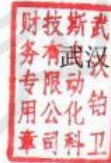 武汉铂卫
斯动化科
技有限公司
财务专用章
武汉